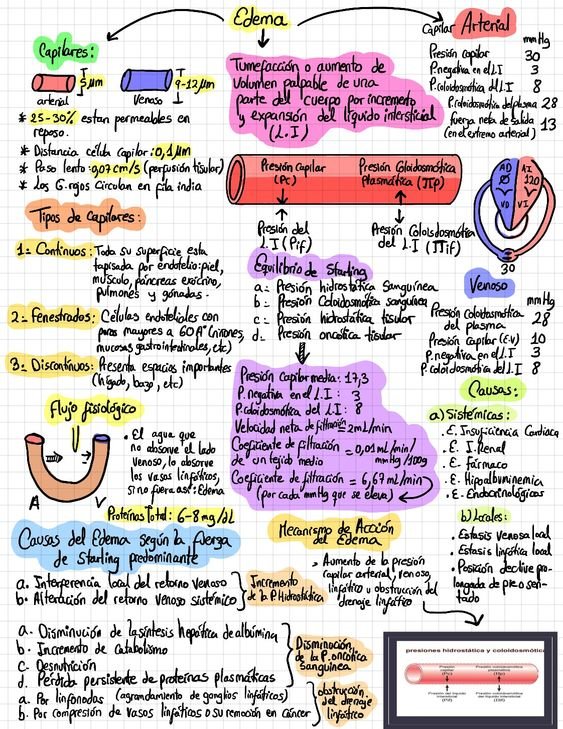 Edema
Capilares:
5μm
arterial
9-12μm
Venoso
* 25-30% estan permeables en
reposo.
* Distancia célula capilar: 0,1μm
* Paso lento: 0,07cm/s (perfusión tisular)
* Los G. rojos Circulan en fila india
Tipos de Capilares:
1= Continuos: Toda su superficie esta
tapisada por endotelio: piel,
musculo, páncreas exócrino,
pulmones y gónadas.
2= Fenestrados: Células endoteliales con
poros mayores a 60A° (riñones,
mucosas gastrointestinales, etc)
3= Discontinuos: Presenta espacios importantes
(hígado, bazo, etc)
Flujo fisiológico
A
V
• El agua que
no absorve el lado
venoso, lo absorve
los vasos linfáticos,
si no fuera así: Edema
Proteínas Total: 6-8mg/dL
Causas del Edema según la fuerza
de Starling predominante
a. Interferencia local del retorno venoso
b. Alteración del retorno venoso sistémico
Incremento
de la P. Hidrostática
a. Disminución de la síntesis hepática de albúmina
b. Incremento de Catabolismo
c. Desnutrición
d. Pérdida persistente de proteínas plasmáticas
Disminución
de la P. oncótica
sanguínea
a. Por linfonodos (agrandamiento de ganglios linfáticos)
b. Por compresión de vasos linfáticos o su remoción en cáncer
obstrucción
del drenaje
linfático
Tumefacción o aumento de
Volumen palpable de una
parte del cuerpo por incremento
y expansión del líquido intersticial
(L.I)
Presión Capilar
(Pc)
Presión Coloidosmótica
Plasmática (πp)
Presión del
L.I (Pif)
Presión Coloidsmótica
del L.I (πif)
Equilibrio de Starling
a= Presión hidrostática Sanguínea
b= Presión Coloidosmótica sanguínea
c= Presión hidrostática tisular
d= Presión oncótica tisular
Presión Capilar media: 17,3
P. negativa en el L.I : 3
P. coloidosmótica del L.I: 8
Velocidad neta de filtración = 2mL/min
Coeficiente de filtración = 0,01mL/min/
de un tejido medio mmHg/100g
Coeficiente de filtración = 6,67mL/min
(por cada mmHg que se eleva)
Mecanismo de Acción
del Edema
• Aumento de la presión
capilar arterial, venoso,
linfático u obstrucción del
drenaje linfático
Capilar Arterial
mmHg
Presión capilar 30
P. negativa en el L.I 3
P. coloidosmótica del L.I 8
P. coloidosmótica del plasma 28
fuerza neta de salida 13
(en el extremo arterial)
AD
AI
120
VD
VI
30
Venoso
mmHg
Presión coloidosmótica
del plasma 28
Presión capilar (E.V) 10
P. negativa en el L.I 3
P. coloidosmótica del L.I 8
Causas:
a) Sistémicas:
. E. Insuficiencia Cardiaca
. E. I. Renal
. E. Fármaco
. E. Hipoalbuminemia
. E. Endocrinológicas
b) Locales:
• Estasis venosa local
• Estasis linfática local
• Posición declive pro-
longada de pie o sen-
tado
presiones hidrostática y coloidosmótica
Presión
capilar
(Pc)
Presión coloidosmótica
plasmática
Presión del líquido
intersticial
(Pif)
Presión coloidosmótica
del líquido intersticial